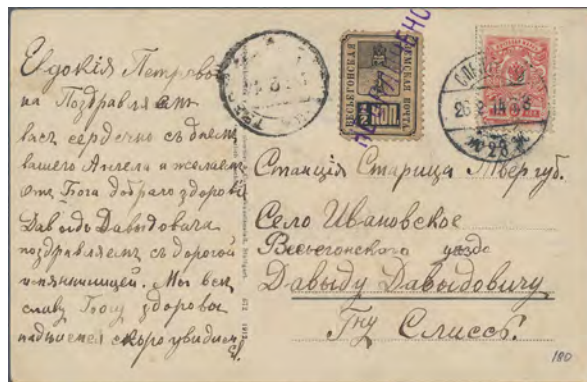 Евдокія Петровон
на Поздравляемъ
васъ сердечно съ днемъ
вашего Ангела и желаемъ
отъ Бога добраго здоровія
Давыдъ Давыдовича
поздравляемъ съ дорогой
имянинницей. Мы всѣ
славу Богу здоровы
надѣнемся скоро увидимся
ВЕСЬЕГОНСКАЯ ЗЕМСКАЯ ПОЧТА
КОП.
26 2 14
Станція Старица Твер губ.
Село Ивановское
Весьегонскаго уѣзда
Давыду Давыдовичу
Гну Слиссъ.
180